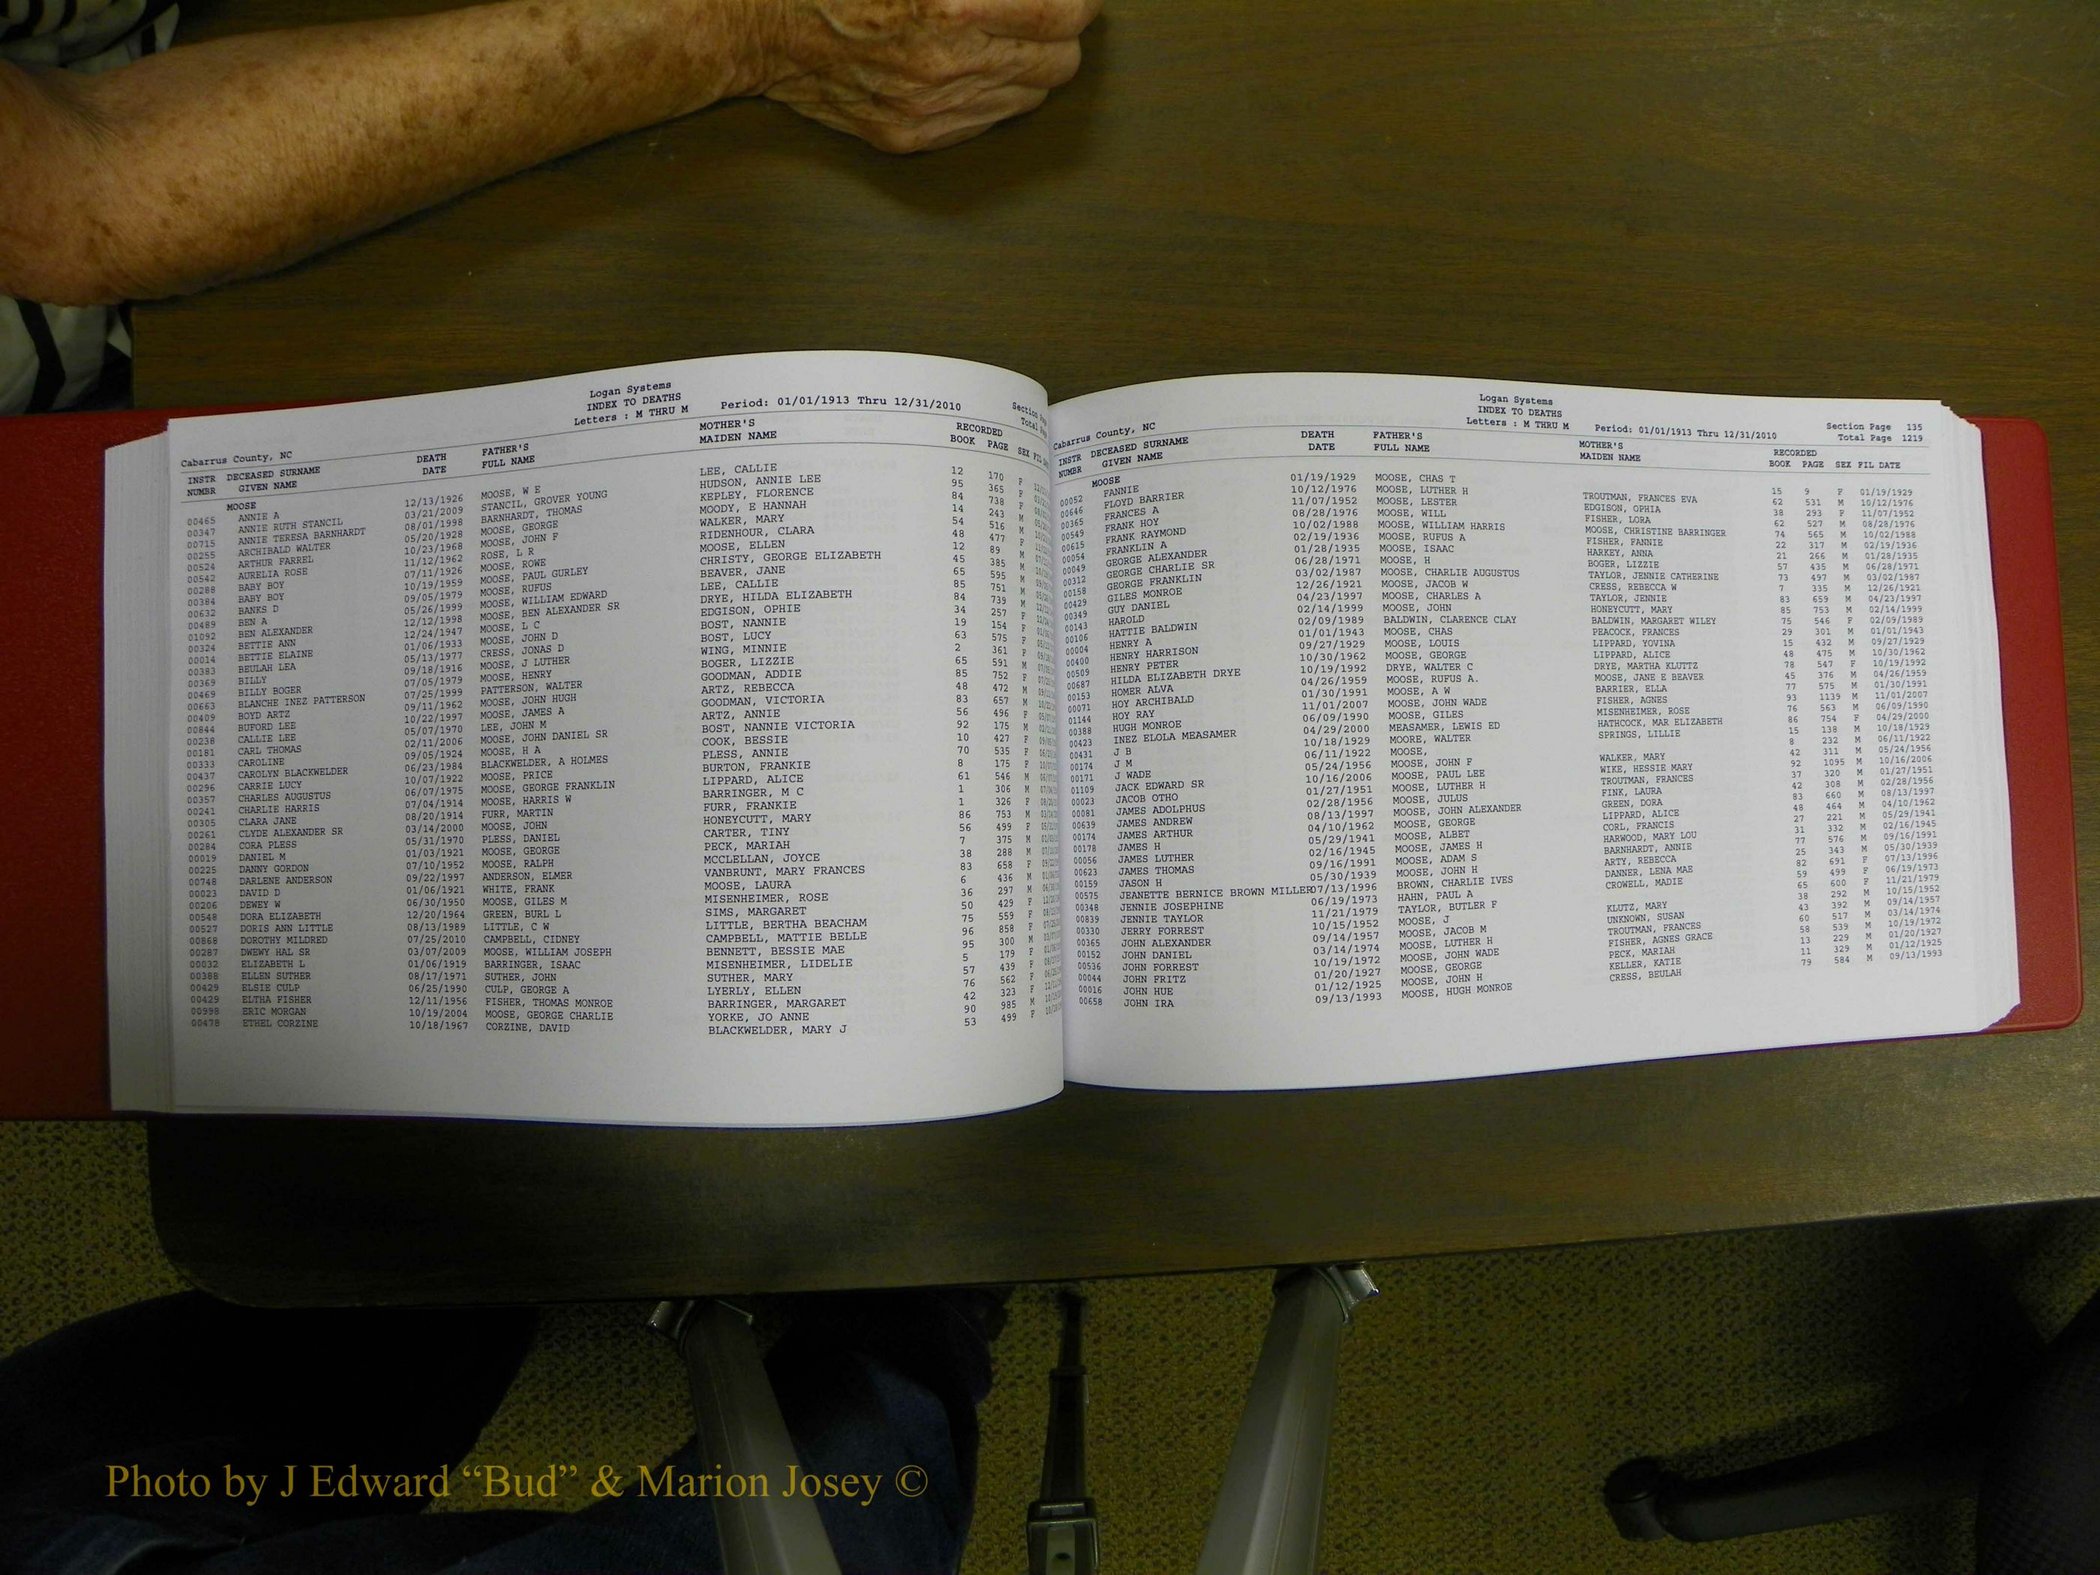 Logan Systems
INDEX TO DEATHS
Letters : M THRU M Period: 01/01/1913 Thru 12/31/2010
Cabarrus County, NC
INSTR DECEASED SURNAME DEATH FATHER'S MOTHER'S RECORDED
NUMBR GIVEN NAME DATE FULL NAME MAIDEN NAME BOOK PAGE SEX
MOOSE
00465 ANNIE A 12/13/1926 MOOSE, W E LEE, CALLIE 12 170 F
00347 ANNIE RUTH STANCIL 03/21/2009 STANCIL, GROVER YOUNG HUDSON, ANNIE LEE 95 365 F
00715 ANNIE TERESA BARNHARDT 08/01/1998 BARNHARDT, THOMAS KEPLEY, FLORENCE 84 738 F
00255 ARCHIBALD WALTER 05/20/1928 MOOSE, GEORGE MOODY, E HANNAH 14 243 M
00524 ARTHUR FARREL 10/23/1968 MOOSE, JOHN F WALKER, MARY 54 516 M
00542 AURELIA ROSE 11/12/1962 ROSE, L R RIDENHOUR, CLARA 48 477 F
00288 BABY BOY 07/11/1926 MOOSE, ROWE MOOSE, ELLEN 12 89 M
00384 BABY BOY 10/19/1959 MOOSE, PAUL GURLEY CHRISTY, GEORGE ELIZABETH 45 385 M
00632 BANKS D 09/05/1979 MOOSE, RUFUS BEAVER, JANE 65 595 M
00489 BEN A 05/26/1999 MOOSE, WILLIAM EDWARD LEE, CALLIE 85 751 M
01092 BEN ALEXANDER 12/12/1998 MOOSE, BEN ALEXANDER SR DRYE, HILDA ELIZABETH 84 739 M
00324 BETTIE ANN 12/24/1947 MOOSE, L C EDGISON, OPHIE 34 257 F
00014 BETTIE ELAINE 01/06/1933 MOOSE, JOHN D BOST, NANNIE 19 154 F
00383 BEULAH LEA 05/13/1977 CRESS, JONAS D BOST, LUCY 63 575 F
00369 BILLY 09/18/1916 MOOSE, J LUTHER WING, MINNIE 2 361 F
00469 BILLY BOGER 07/05/1979 MOOSE, HENRY BOGER, LIZZIE 65 591 M
00663 BLANCHE INEZ PATTERSON 07/25/1999 PATTERSON, WALTER GOODMAN, ADDIE 85 752 F
00409 BOYD ARTZ 09/11/1962 MOOSE, JOHN HUGH ARTZ, REBECCA 48 472 M
00844 BUFORD LEE 10/22/1997 MOOSE, JAMES A GOODMAN, VICTORIA 83 657 M
00238 CALLIE LEE 05/07/1970 LEE, JOHN M ARTZ, ANNIE 56 496 F
00181 CARL THOMAS 02/11/2006 MOOSE, JOHN DANIEL SR BOST, NANNIE VICTORIA 92 175 M
00333 CAROLINE 09/05/1924 MOOSE, H A COOK, BESSIE 10 427 F
00437 CAROLYN BLACKWELDER 06/23/1984 BLACKWELDER, A HOLMES PLESS, ANNIE 70 535 F
00296 CARRIE LUCY 10/07/1922 MOOSE, PRICE BURTON, FRANKIE 8 175 F
00357 CHARLES AUGUSTUS 06/07/1975 MOOSE, GEORGE FRANKLIN LIPPARD, ALICE 61 546 M
00241 CHARLIE HARRIS 07/04/1914 MOOSE, HARRIS W BARRINGER, M C 1 306 M
00305 CLARA JANE 08/20/1914 FURR, MARTIN FURR, FRANKIE 1 326 F
00261 CLYDE ALEXANDER SR 03/14/2000 MOOSE, JOHN HONEYCUTT, MARY 86 753 M
00284 CORA PLESS 05/31/1970 PLESS, DANIEL CARTER, TINY 56 499 F
00019 DANIEL M 01/03/1921 MOOSE, GEORGE PECK, MARIAH 7 375 M
00225 DANNY GORDON 07/10/1952 MOOSE, RALPH MCCLELLAN, JOYCE 38 288 M
00748 DARLENE ANDERSON 09/22/1997 ANDERSON, ELMER VANBRUNT, MARY FRANCES 83 658 F
00023 DAVID D 01/06/1921 WHITE, FRANK MOOSE, LAURA 6 436 M
00206 DEWEY W 06/30/1950 MOOSE, GILES M MISENHEIMER, ROSE 36 297 M
00548 DORA ELIZABETH 12/20/1964 GREEN, BURL L SIMS, MARGARET 50 429 F
00527 DORIS ANN LITTLE 08/13/1989 LITTLE, C W LITTLE, BERTHA BEACHAM 75 559 F
00868 DOROTHY MILDRED 07/25/2010 CAMPBELL, CIDNEY CAMPBELL, MATTIE BELLE 96 858 F
00287 DWEWY HAL SR 03/07/2009 MOOSE, WILLIAM JOSEPH BENNETT, BESSIE MAE 95 300 M
00032 ELIZABETH L 01/06/1919 BARRINGER, ISAAC MISENHEIMER, LIDELIE 5 179 F
00388 ELLEN SUTHER 08/17/1971 SUTHER, JOHN SUTHER, MARY 57 439 F
00429 ELSIE CULP 06/25/1990 CULP, GEORGE A LYERLY, ELLEN 76 562 F
00429 ELTHA FISHER 12/11/1956 FISHER, THOMAS MONROE BARRINGER, MARGARET 42 323 F
00998 ERIC MORGAN 10/19/2004 MOOSE, GEORGE CHARLIE YORKE, JO ANNE 90 985 M
00478 ETHEL CORZINE 10/18/1967 CORZINE, DAVID BLACKWELDER, MARY J 53 499 F
Logan Systems
INDEX TO DEATHS
Letters : M THRU M Period: 01/01/1913 Thru 12/31/2010
Cabarrus County, NC Section Page 135
Total Page 1219
INSTR DECEASED SURNAME DEATH FATHER'S MOTHER'S RECORDED
NUMBR GIVEN NAME DATE FULL NAME MAIDEN NAME BOOK PAGE SEX FIL DATE
MOOSE
00052 FANNIE 01/19/1929 MOOSE, CHAS T 15 9 F 01/19/1929
00646 FLOYD BARRIER 10/12/1976 MOOSE, LUTHER H TROUTMAN, FRANCES EVA 62 531 M 10/12/1976
00365 FRANCES A 11/07/1952 MOOSE, LESTER EDGISON, OPHIA 38 293 F 11/07/1952
00549 FRANK HOY 08/28/1976 MOOSE, WILL FISHER, LORA 62 527 M 08/28/1976
00615 FRANK RAYMOND 10/02/1988 MOOSE, WILLIAM HARRIS MOOSE, CHRISTINE BARRINGER 74 565 M 10/02/1988
00054 FRANKLIN A 02/19/1936 MOOSE, RUFUS A FISHER, FANNIE 22 317 M 02/19/1936
00049 GEORGE ALEXANDER 01/28/1935 MOOSE, ISAAC HARKEY, ANNA 21 266 M 01/28/1935
00312 GEORGE CHARLIE SR 06/28/1971 MOOSE, H BOGER, LIZZIE 57 435 M 06/28/1971
00158 GEORGE FRANKLIN 03/02/1987 MOOSE, CHARLIE AUGUSTUS TAYLOR, JENNIE CATHERINE 73 497 M 03/02/1987
00429 GILES MONROE 12/26/1921 MOOSE, JACOB W CRESS, REBECCA W 7 335 M 12/26/1921
00349 GUY DANIEL 04/23/1997 MOOSE, CHARLES A TAYLOR, JENNIE 83 659 M 04/23/1997
00143 HAROLD 02/14/1999 MOOSE, JOHN HONEYCUTT, MARY 85 753 M 02/14/1999
00106 HATTIE BALDWIN 02/09/1989 BALDWIN, CLARENCE CLAY BALDWIN, MARGARET WILEY 75 546 F 02/09/1989
00004 HENRY A 01/01/1943 MOOSE, CHAS PEACOCK, FRANCES 29 301 M 01/01/1943
00400 HENRY HARRISON 09/27/1929 MOOSE, LOUIS LIPPARD, YOVINA 15 432 M 09/27/1929
00509 HENRY PETER 10/30/1962 MOOSE, GEORGE LIPPARD, ALICE 48 475 M 10/30/1962
00687 HILDA ELIZABETH DRYE 10/19/1992 DRYE, WALTER C DRYE, MARTHA KLUTTZ 78 547 F 10/19/1992
00153 HOMER ALVA 04/26/1959 MOOSE, RUFUS A. MOOSE, JANE E BEAVER 45 376 M 04/26/1959
00071 HOY ARCHIBALD 01/30/1991 MOOSE, A W BARRIER, ELLA 77 575 M 01/30/1991
01144 HOY RAY 11/01/2007 MOOSE, JOHN WADE FISHER, AGNES 93 1139 M 11/01/2007
00388 HUGH MONROE 06/09/1990 MOOSE, GILES MISENHEIMER, ROSE 76 563 M 06/09/1990
00423 INEZ ELOLA MEASAMER 04/29/2000 MEASAMER, LEWIS ED HATHCOCK, MAR ELIZABETH 86 754 F 04/29/2000
00431 J B 10/18/1929 MOORE, WALTER SPRINGS, LILLIE 15 138 M 10/18/1929
00174 J M 06/11/1922 MOOSE, 8 232 M 06/11/1922
00171 J WADE 05/24/1956 MOOSE, JOHN F WALKER, MARY 42 311 M 05/24/1956
01109 JACK EDWARD SR 10/16/2006 MOOSE, PAUL LEE WIKE, HESSIE MARY 92 1095 M 10/16/2006
00023 JACOB OTHO 01/27/1951 MOOSE, LUTHER H TROUTMAN, FRANCES 37 320 M 01/27/1951
00081 JAMES ADOLPHUS 02/28/1956 MOOSE, JULUS FINK, LAURA 42 308 M 02/28/1956
00639 JAMES ANDREW 08/13/1997 MOOSE, JOHN ALEXANDER GREEN, DORA 83 660 M 08/13/1997
00174 JAMES ARTHUR 04/10/1962 MOOSE, GEORGE LIPPARD, ALICE 48 464 M 04/10/1962
00178 JAMES H 05/29/1941 MOOSE, ALBET CORL, FRANCIS 27 221 M 05/29/1941
00056 JAMES LUTHER 02/16/1945 MOOSE, JAMES H HARWOOD, MARY LOU 31 332 M 02/16/1945
00623 JAMES THOMAS 09/16/1991 MOOSE, ADAM S BARNHARDT, ANNIE 77 576 M 09/16/1991
00159 JASON H 05/30/1939 MOOSE, JOHN H ARTY, REBECCA 25 343 M 05/30/1939
00575 JEANETTE BERNICE BROWN MILLER 07/13/1996 BROWN, CHARLIE IVES DANNER, LENA MAE 82 691 F 07/13/1996
00348 JENNIE JOSEPHINE 06/19/1973 HAHN, PAUL A CROWELL, MADIE 59 499 F 06/19/1973
00839 JENNIE TAYLOR 11/21/1979 TAYLOR, BUTLER F 65 600 F 11/21/1979
00330 JERRY FORREST 10/15/1952 MOOSE, J KLUTZ, MARY 38 292 M 10/15/1952
00365 JOHN ALEXANDER 09/14/1957 MOOSE, JACOB M UNKNOWN, SUSAN 43 392 M 09/14/1957
00152 JOHN DANIEL 03/14/1974 MOOSE, LUTHER H TROUTMAN, FRANCES 60 517 M 03/14/1974
00536 JOHN FORREST 10/19/1972 MOOSE, JOHN WADE FISHER, AGNES GRACE 58 539 M 10/19/1972
00044 JOHN FRITZ 01/20/1927 MOOSE, GEORGE PECK, MARIAH 13 229 M 01/20/1927
00016 JOHN HUE 01/12/1925 MOOSE, JOHN H KELLER, KATIE 11 329 M 01/12/1925
00658 JOHN IRA 09/13/1993 MOOSE, HUGH MONROE CRESS, BEULAH 79 584 M 09/13/1993
Photo by J Edward “Bud” & Marion Josey ©